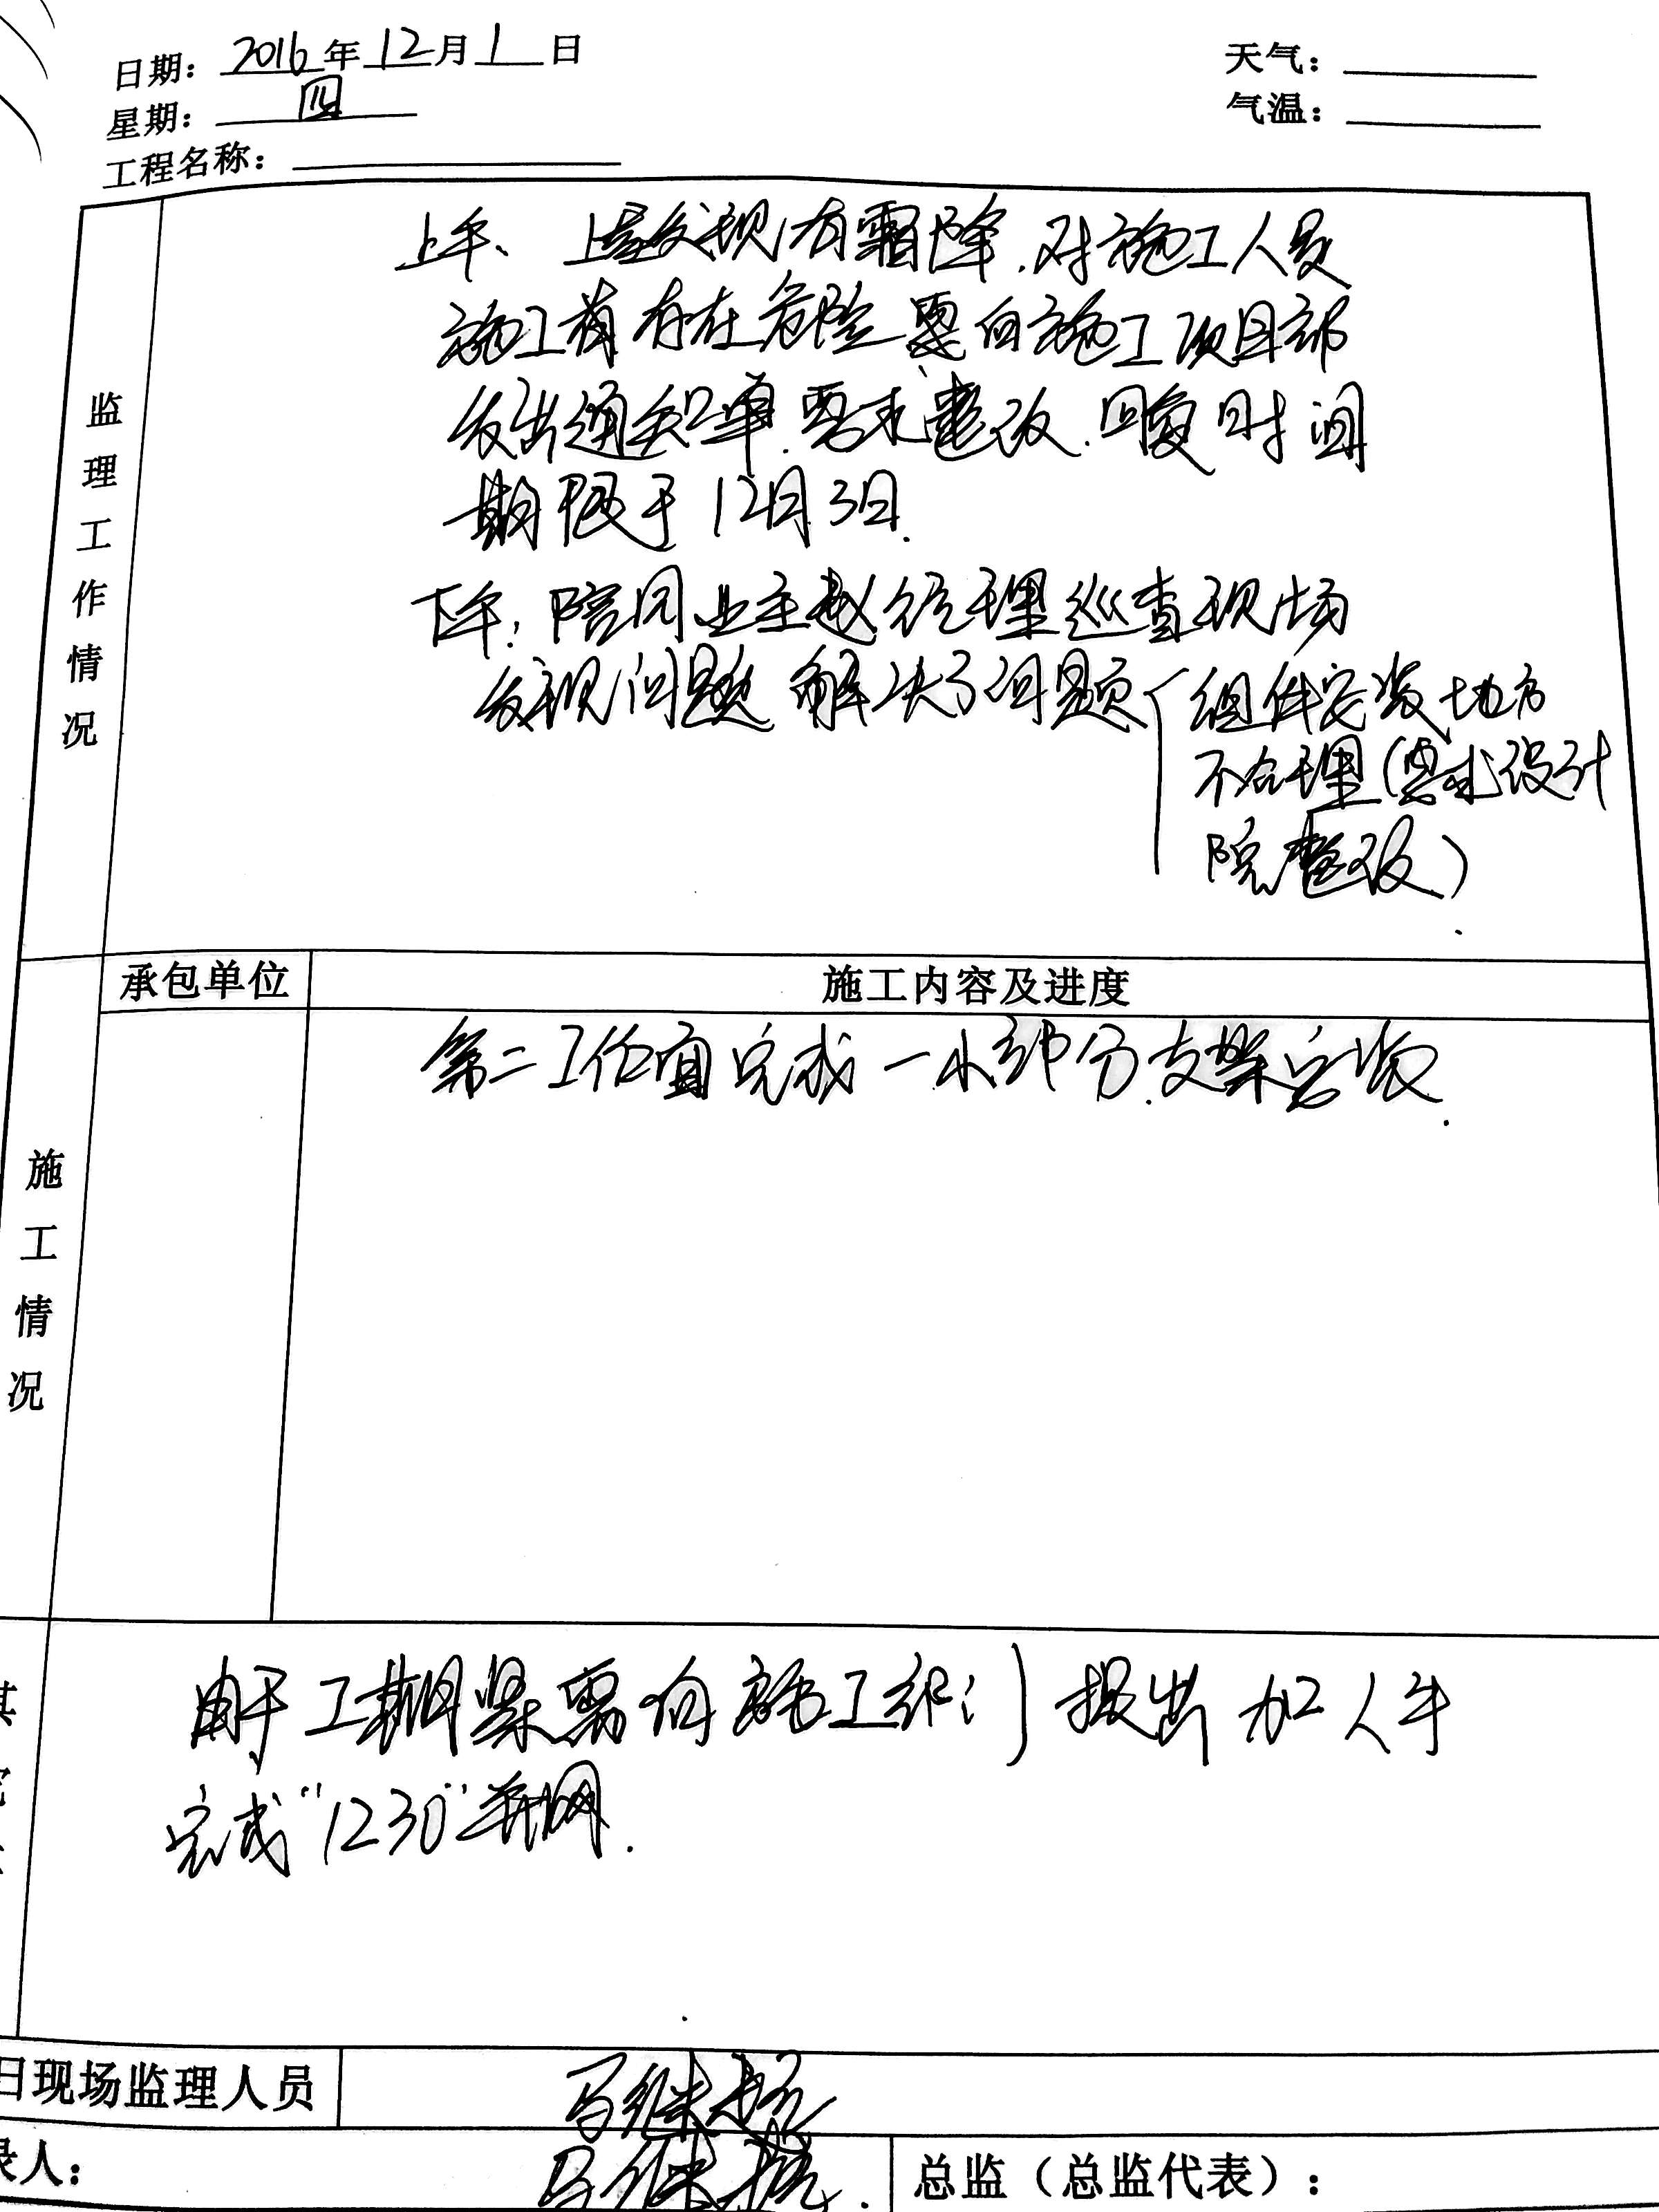 日期：2016年12月1日
天气：
星期：四
气温：
工程名称：
监理工作情况
上午、上去发现有霜降，对施工人员
施工有存在危险要向施工项目部
发出通知单，要求整改，回复时间
期限于12月3日.
下午：陪同业主赵经理巡查现场
发现问题 解决了问题 组件安装地方
不合理（要求设计
院整改）
承包单位
施工内容及进度
施工情况
第二工作面完成一小部分支架安装.
由于工期紧需向施工部门提出加人手
完成“1230”并网.
日现场监理人员
马继
录人：
马继
总监（总监代表）：